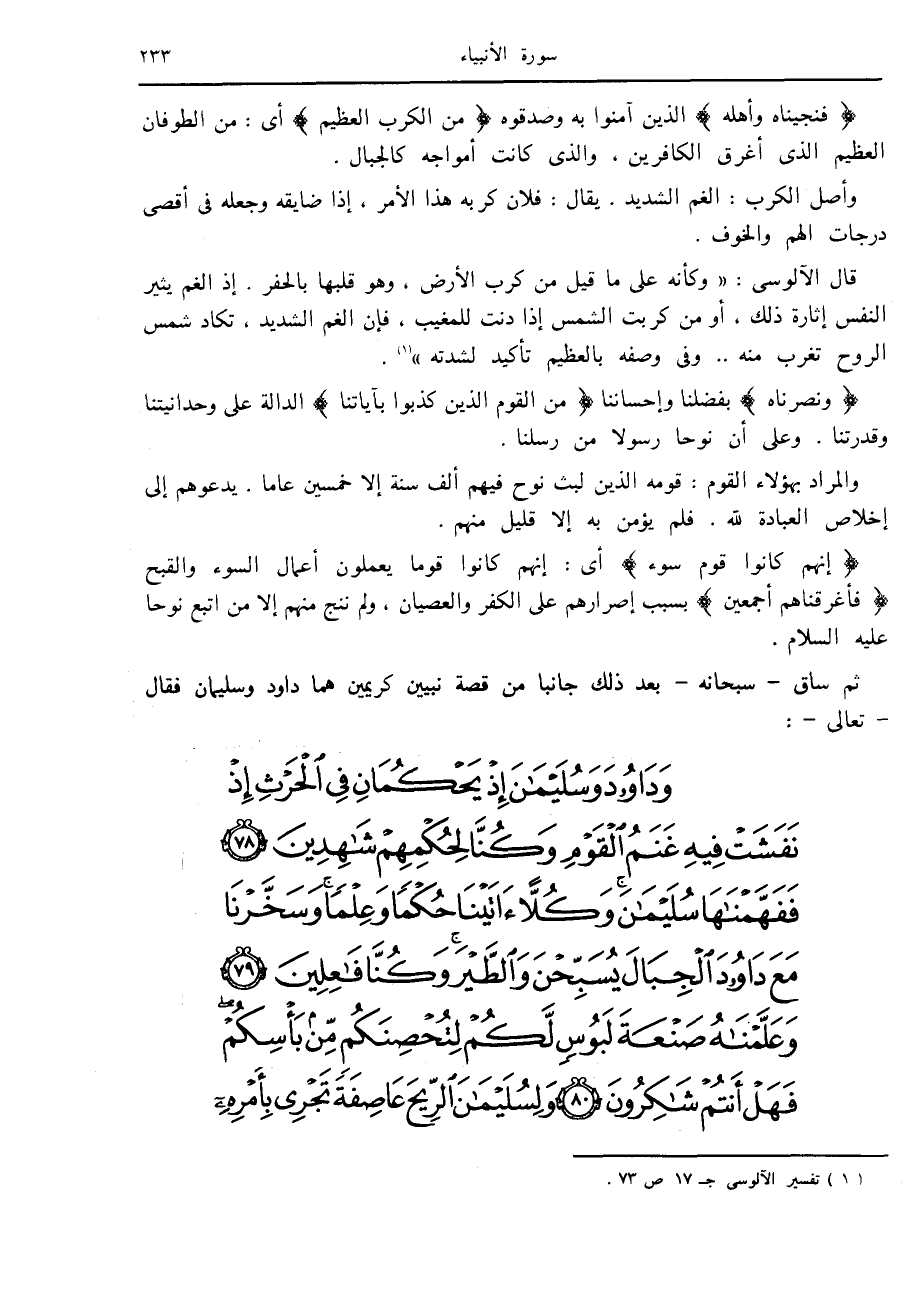 سورة الأنبياء ٢٣٣
﴿ فنجيناه وأهله ﴾ الذين آمنوا به وصدقوه ﴿ من الكرب العظيم ﴾ أى : من الطوفان
العظيم الذى أغرق الكافرين ، والذى كانت أمواجه كالجبال .
وأصل الكرب : الغم الشديد . يقال : فلان كربه هذا الأمر ، إذا ضايقه وجعله فى أقصى
درجات الهم والخوف .
قال الآلوسى : « وكأنه على ما قيل من كرب الأرض ، وهو قلبها بالحفر . إذ الغم يثير
النفس إثارة ذلك ، أو من كربت الشمس إذا دنت للمغيب ، فإن الغم الشديد ، تكاد شمس
الروح تغرب منه .. وفى وصفه بالعظيم تأكيد لشدته »(١) .
﴿ ونصرناه ﴾ بفضلنا وإحساننا ﴿ من القوم الذين كذبوا بآياتنا ﴾ الدالة على وحدانيتنا
وقدرتنا . وعلى أن نوحا رسولا من رسلنا .
والمراد بهؤلاء القوم : قومه الذين لبث نوح فيهم ألف سنة إلا خمسين عاما . يدعوهم إلى
إخلاص العبادة لله . فلم يؤمن به إلا قليل منهم .
﴿ إنهم كانوا قوم سوء ﴾ أى : إنهم كانوا قوما يعملون أعمال السوء والقبح
﴿ فأغرقناهم أجمعين ﴾ بسبب إصرارهم على الكفر والعصيان ، ولم ننج منهم إلا من اتبع نوحا
عليه السلام .
ثم ساق – سبحانه – بعد ذلك جانبا من قصة نبيين كريمين هما داود وسليمان فقال
– تعالى – :
وَدَاوُۥدَ وَسُلَيْمَٰنَ إِذْ يَحْكُمَانِ فِي ٱلْحَرْثِ إِذْ
نَفَشَتْ فِيهِ غَنَمُ ٱلْقَوْمِ وَكُنَّا لِحُكْمِهِمْ شَٰهِدِينَ ٧٨
فَفَهَّمْنَٰهَا سُلَيْمَٰنَۚ وَكُلًّا ءَاتَيْنَا حُكْمًا وَعِلْمًاۚ وَسَخَّرْنَا
مَعَ دَاوُۥدَ ٱلْجِبَالَ يُسَبِّحْنَ وَٱلطَّيْرَۚ وَكُنَّا فَٰعِلِينَ ٧٩
وَعَلَّمْنَٰهُ صَنْعَةَ لَبُوسٍ لَّكُمْ لِتُحْصِنَكُم مِّنۢ بَأْسِكُمْۖ
فَهَلْ أَنتُمْ شَٰكِرُونَ ٨٠ وَلِسُلَيْمَٰنَ ٱلرِّيحَ عَاصِفَةً تَجْرِي بِأَمْرِهِۦٓ
( ١ ) تفسير الآلوسى جـ ١٧ ص ٧٣ .